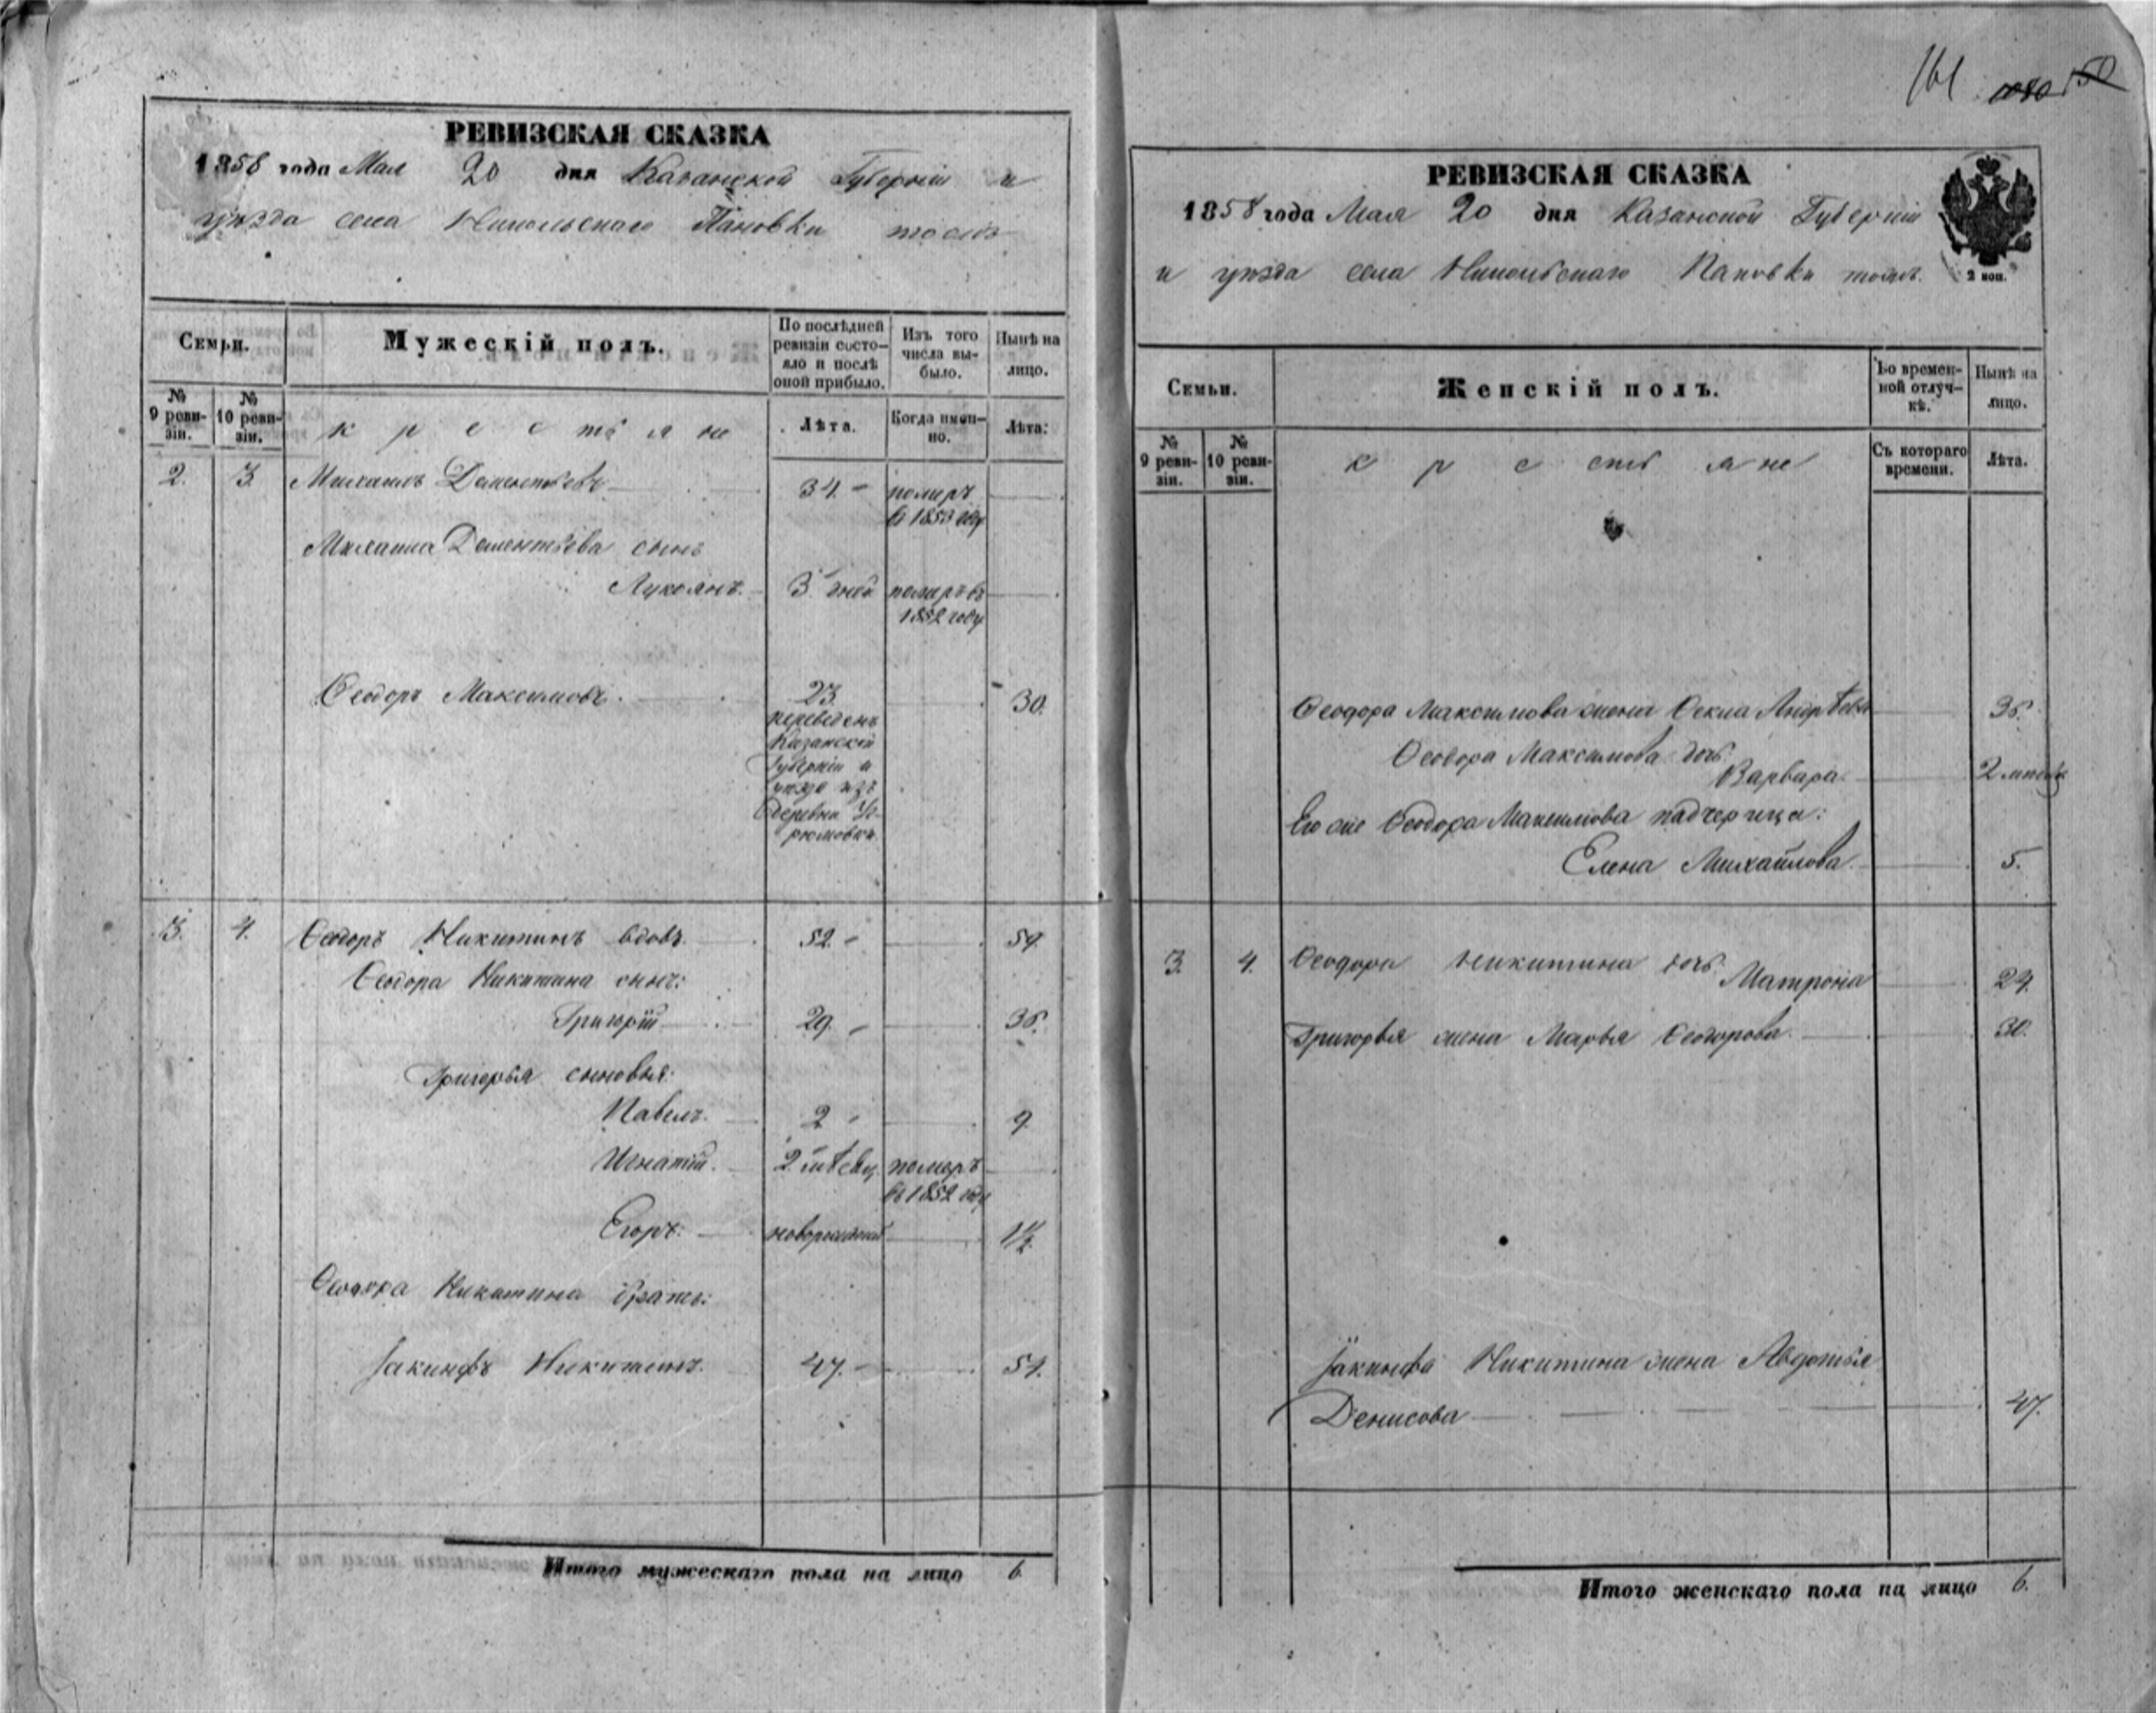 161
РЕВИЗСКАЯ СКАЗКА
1858 года Мая 20 дня Казанской Губерніи и
уѣзда села Никольскаго Пановки тожъ
Семьи.
Мужескій полъ.
По послѣдней ревизіи состояло и послѣ оной прибыло.
Изъ того числа выбыло.
Нынѣ на лицо.
№ 9 ревизіи.
№ 10 ревизіи.
крестьяне
Лѣта.
Когда именно.
Лѣта.
2. 3. Михаилъ Дементьевъ 34. померъ
въ 1853 году
Михаила Дементьева сынъ
Лукоянъ. 3 дней померъ въ
1852 году
Ѳеодоръ Максимовъ. 23. 30.
переведенъ
Казанской
Губерніи и
уѣзда изъ
деревни Уг-
рюмовки
3. 4. Ѳеодоръ Никитинъ вдовъ. 52. 59.
Ѳеодора Никитина сынъ:
Григорій 29. 36.
Григорья сыновья:
Павелъ. 2 9.
Игнатій. 2 мѣсяц. померъ
въ 1852 году
Егоръ. новорожденный 1½
Ѳеодора Никитина братъ:
Іакинфъ Никитинъ. 47. 54.
Итого мужескаго пола на лицо 6.
РЕВИЗСКАЯ СКАЗКА
1858 года Мая 20 дня Казанской Губерніи
и уѣзда села Никольскаго Пановки тожъ.
2 коп.
Семьи.
Женскій полъ.
Во временной отлучкѣ.
Нынѣ на лицо.
№ 9 ревизіи.
№ 10 ревизіи.
крестьяне
Съ котораго времени.
Лѣта.
Ѳеодора Максимова жена Ѳекла Андрѣева 36.
Ѳеодора Максимова дочь
Варвара. 2 мѣсяц
Его же Ѳеодора Максимова падчерица:
Елена Михайлова. 5.
3. 4. Ѳеодора Никитина дочь
Матрона 24.
Григорья жена Марья Ѳеодорова. 30.
Іакинфа Никитина жена Авдотья
Денисова 47.
Итого женскаго пола на лицо 6.